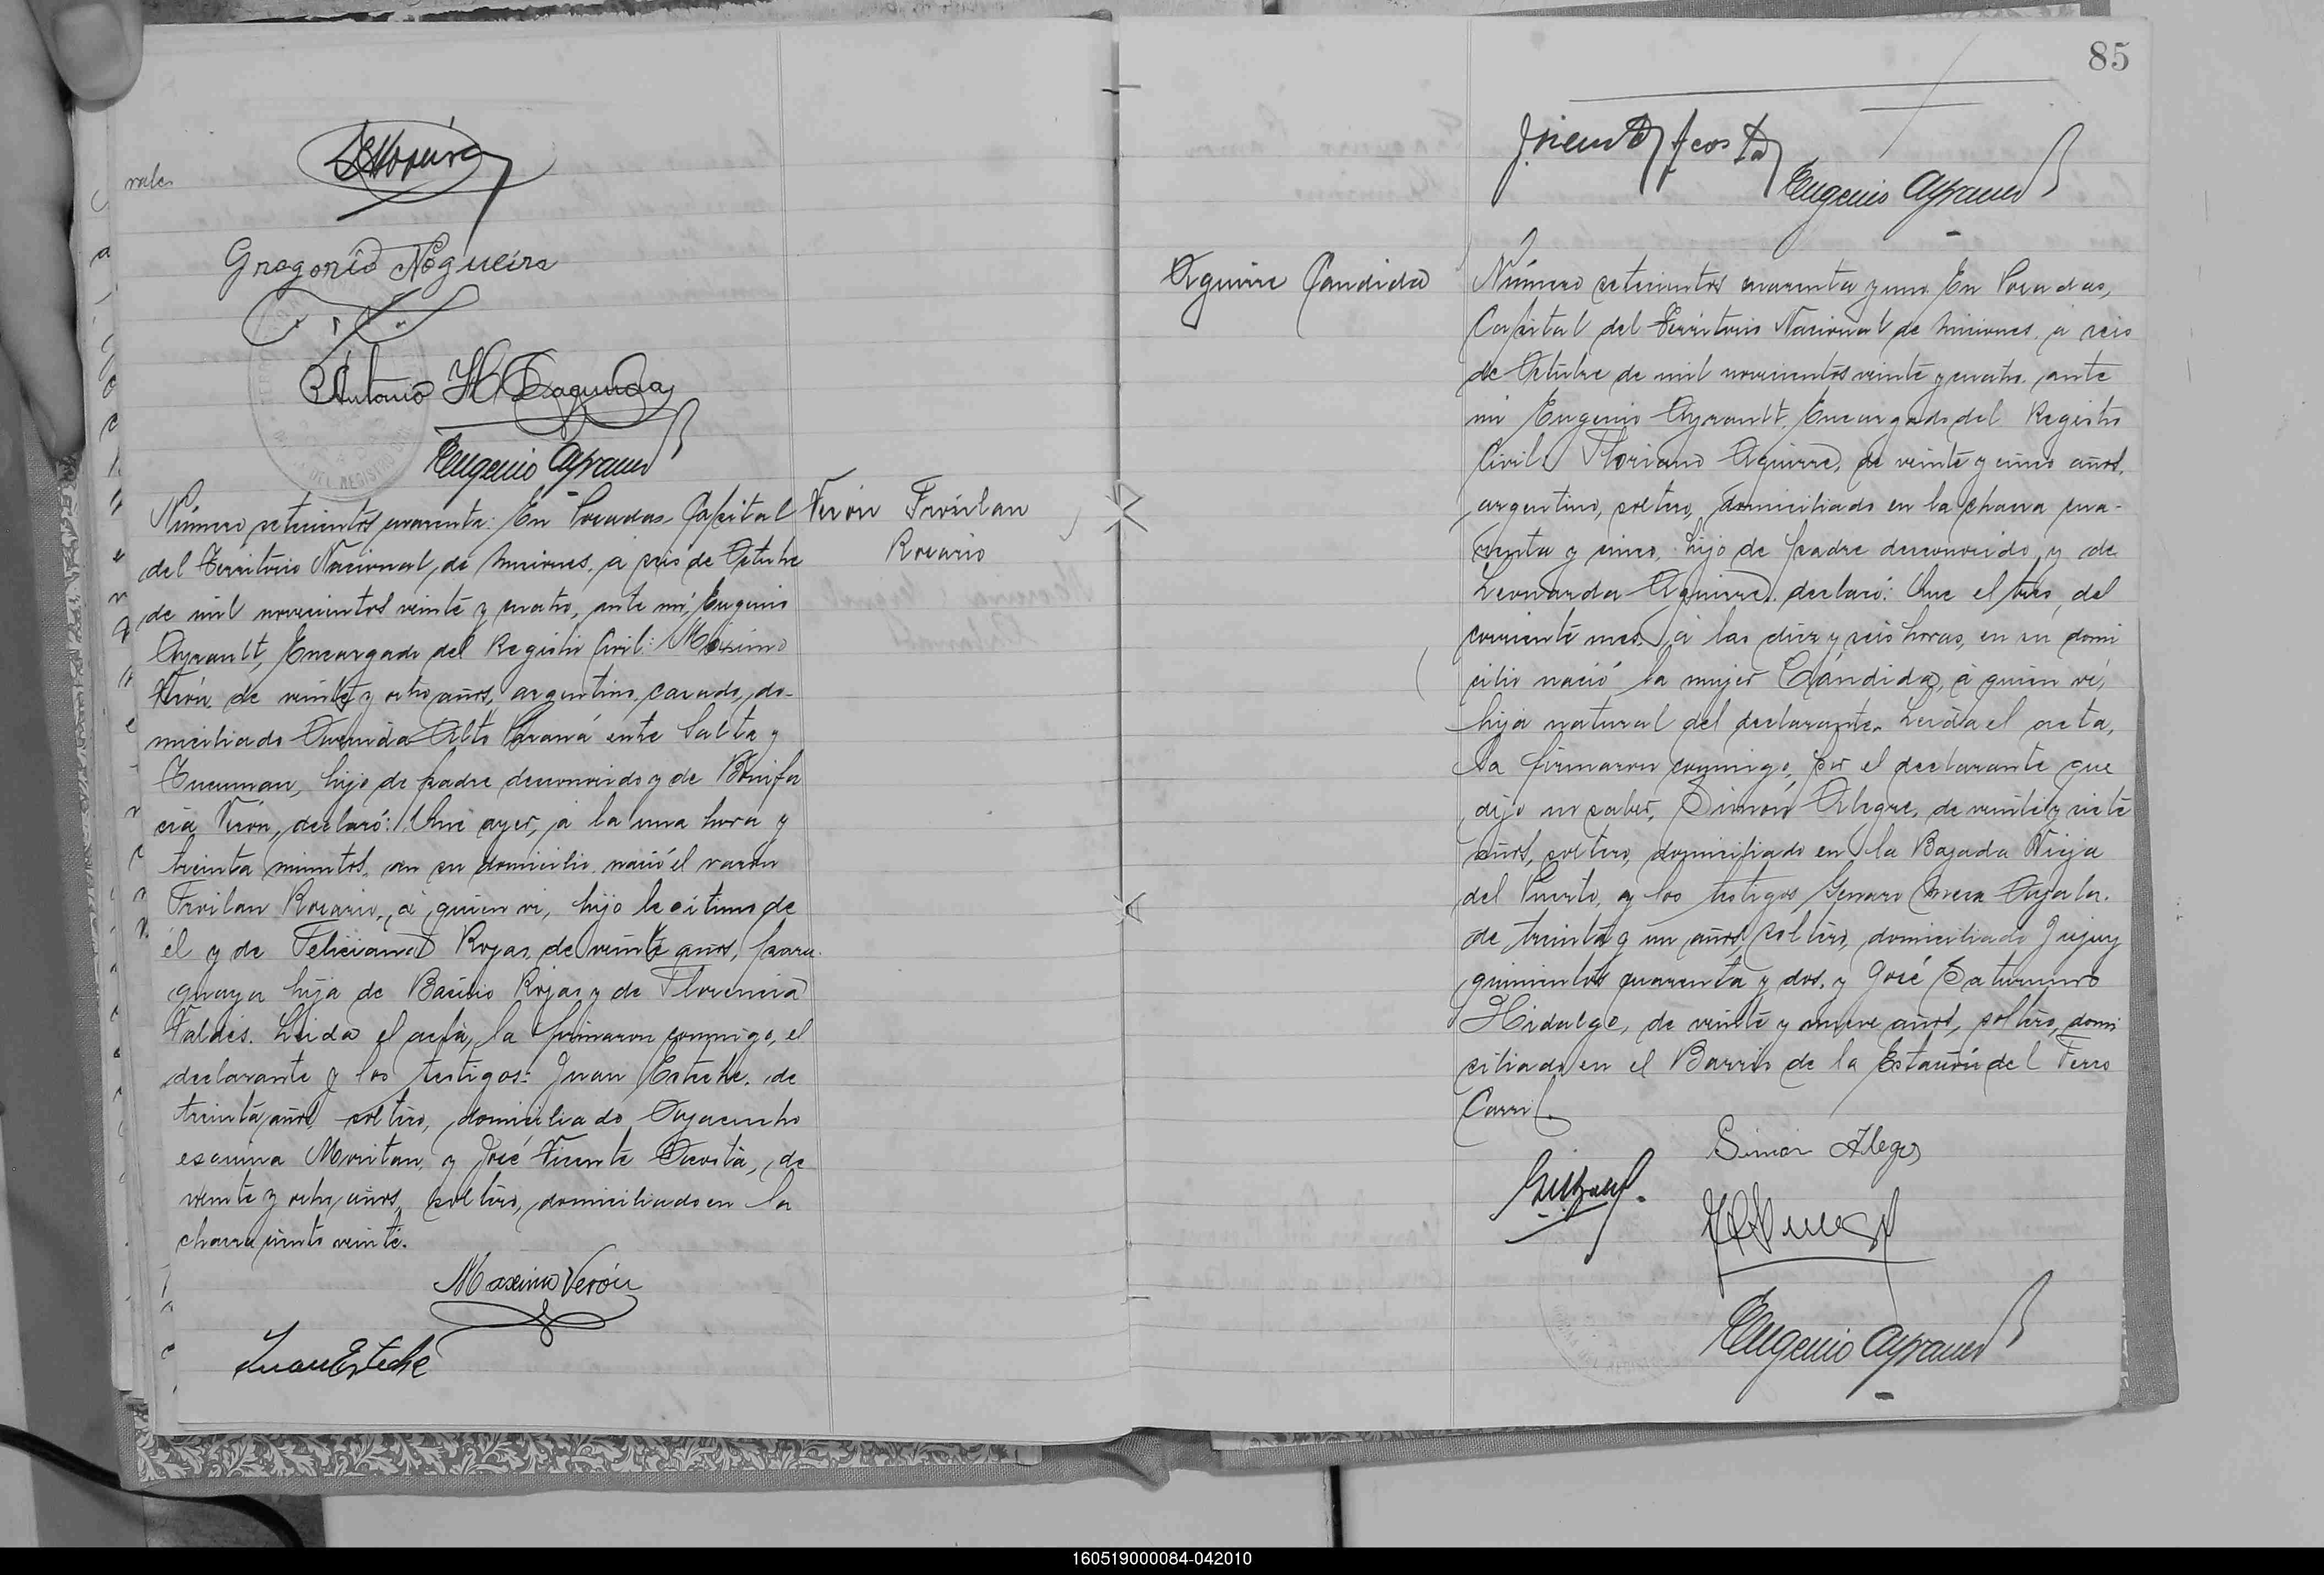 rales
Gregorio Nogueira
Antonio H.
Eugenio Ayrault
Número setecientos cuarenta: En Posadas, Capital
del Territorio Nacional, de Misiones, a seis de Octubre
de mil novecientos veinte y cuatro, ante mí, Eugenio
Ayrault, Encargado del Registro Civil: Máximo
Verón, de veinte y ocho años, argentino, casado, do-
miciliado Avenida Alto Paraná entre Salta y
Tucuman, hijo de padre desconocido y de Bonifa
cia Verón, declaró: Que ayer, a la una hora y
treinta minutos, en su domicilio, nació el varón
Froilan Rosario, a quien vi, hijo legítimo de
él y de Feliciana Rojas, de veinte años, para-
guaya hija de Basilio Rojas y de Florencia
Valdés. Leida el acta, la firmaron conmigo, el
declarante y los testigos: Juan Esteche, de
treinta años soltero, domiciliado Ayacucho
esquina Moritan, y José Vicente Acosta, de
veinte y ocho años, soltero, domiciliado en la
chacra ciento veinte.
Maximo Verón
Juan Esteche
Verón Froilan
Rosario
85
Vicente Acosta
Eugenio Ayrault
Aguirre Candida
Número setecientos cuarenta y uno. En Posadas,
Capital del Territorio Nacional de Misiones, a seis
de Octubre de mil novecientos veinte y cuatro, ante
mi Eugenio Ayrault, Encargado del Registro
Civil: Floriano Aguirre, de veinte y cinco años,
argentino, soltero, domiciliado en la chacra cua-
renta y cinco, hijo de padre desconocido y de
Leonarda Aguirre, declaró: Que el tres, del
corriente mes, a las diez y seis horas, en su domi
cilio nació la mujer Cándida, a quien vi,
hija natural del declarante. Leida el acta,
la firmaron conmigo, por el declarante que
dijo no saber, Simón Alegre, de veinte y siete
años, soltero, domiciliado en la Bajada Vieja
del Puerto, y los testigos, Genaro
de treinta y un años, soltero, domiciliado Jujuy
quinientos cuarenta y dos, y José Saturnino
Hidalgo, de veinte y nueve años, soltero, domi
ciliado en el Barrio de la Estación del Ferro
Carril.
Simon Alegre
Eugenio Ayrault
160519000084-042010